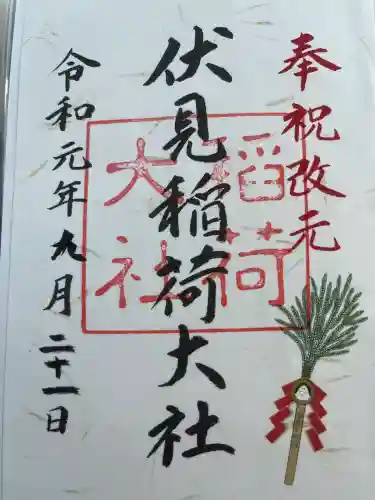 奉祝改元
伏見稲荷大社
稲荷
大社
令和元年九月二十一日